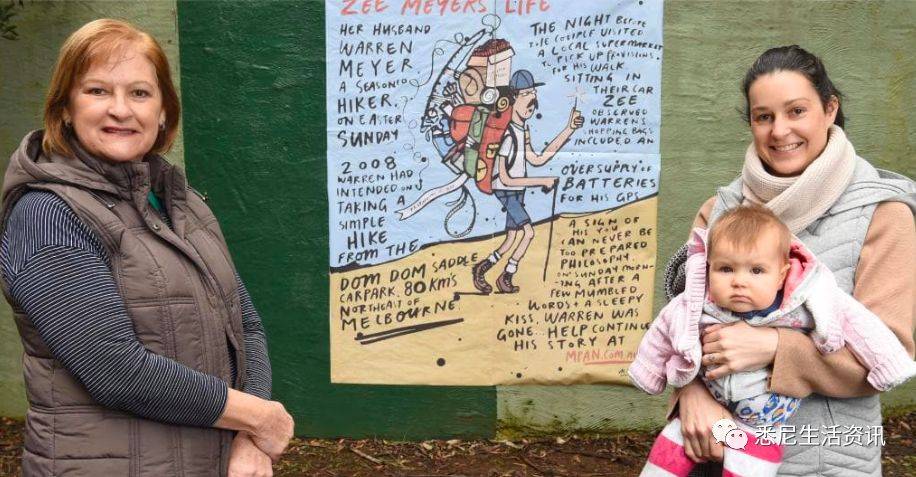 ZEE MEYERS LIFE
HER HUSBAND
WARREN
MEYER
A SEASONED
HIKER.
ON EASTER
SUNDAY
2008
WARREN HAD
INTENDED ON
TAKING A
SIMPLE
HIKE
FROM THE
DOM DOM SADDLE
CARPARK. 80 KM'S
NORTHEAST OF
MELBOURNE.
THE NIGHT BEFORE
THE COUPLE VISITED
A LOCAL SUPERMARKET
TO PICK UP PROVISIONS
FOR HIS WALK.
SITTING IN
THEIR CAR
ZEE
OBSERVED
WARRENS
SHOPPING BAGS
INCLUDED AN
OVERSUPPLY OF
BATTERIES
FOR HIS GPS
A SIGN OF
HIS YOU
CAN NEVER BE
TOO PREPARED
PHILOSOPHY.
ON SUNDAY MORN-
ING AFTER A
FEW MUMBLED
WORDS + A SLEEPY
KISS. WARREN WAS
GONE... HELP CONTINUE
HIS STORY AT
MPAN.COM.AU
悉尼生活资讯